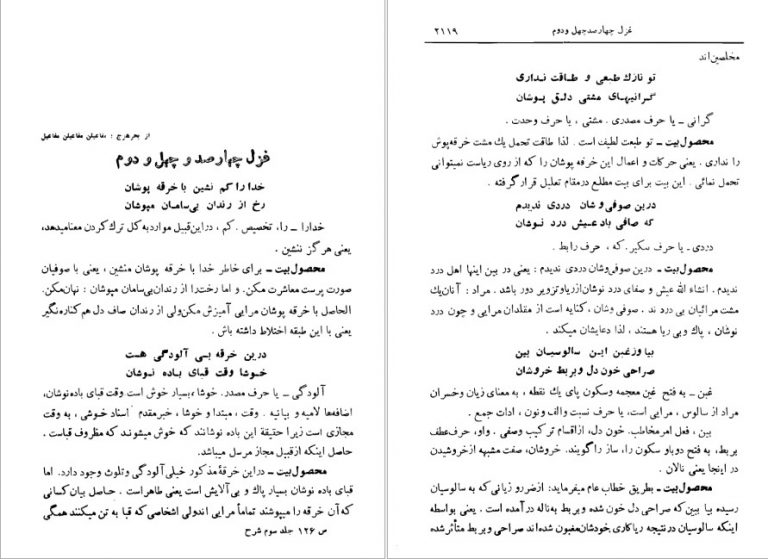 از بحر هزج : مفاعیلن مفاعیلن مفاعیل
غزل چهارصد و چهل و دوم
خدا را کم نشین با خرقه پوشان
رخ از رندان بی‌سامان مپوشان
خدارا ــ را، تخصیص . کم ، در این قبیل موارد به کل ترك کردن معنا میدهد،
یعنی هرگز ننشین .
محصول بیت ــ برای خاطر خدا با خرقه پوشان منشین ، یعنی با صوفیان
صورت پرست معاشرت مکن. و اما رخت را از رندان بی‌سامان مپوشان : نهان‌مکن.
الحاصل با خرقه پوشان مرایی آمیزش مکن ولی از رندان صاف دل هم کناره نگیر
یعنی با این طبقه اختلاط داشته باش .
درین خرقه بسی آلودگی هست
خوشا وقت قبای باده نوشان
آلودگی ــ یا حرف مصدر. خوشا ، بسیار خوش است وقت قبای باده نوشان،
اضافه‌ها لامیه و بیانیه . وقت ، مبتدا و خوشا ، خبر مقدم . اسناد خوشی ، به وقت
مجازی است زیرا حقیقة این باده نوشانند که خوش میشوند که مظروف قباست .
حاصل اینکه از قبیل مجاز مرسل میباشد.
محصول بیت ــ در این خرقهٔ مذکور خیلی آلودگی و تلوث وجود دارد. اما
قبای باده نوشان بسیار پاك و بی آلایش است یعنی طاهر است . حاصل بیان کسانی
که آن خرقه را میپوشند تماماً مرایی اند ولی اشخاصی که قبا به تن میکنند همگی
ص ۱۲۶ جلد سوم شرح
غزل چهارصد چهل و دوم ۲۱۱۹
مخلصین‌اند
تو نازك طبعی و طاقت نداری
گرانیهای مشتی دلق پوشان
گرانی ــ یا حرف مصدری . مشتی ، یا حرف وحدت .
محصول بیت ــ تو طبعت لطیف است . لذا طاقت تحمل یك مشت خرقه‌پوش
را نداری . یعنی حرکات و اعمال این خرقه پوشان را که از روی ریاست نمیتوانی
تحمل نمائی . این بیت برای بیت مطلع در مقام تعلیل قرار گرفته .
درین صوفی وشان دردی ندیدم
که صافی باد عیش درد نوشان
دردی ــ یا حرف سکیر . که ، حرف رابط .
محصول بیت ــ درین صوفی وشان دردی ندیدم : یعنی در بین اینها اهل درد
ندیدم . انشاء الله عیش و صفای درد نوشان از ریا و تزویر دور باشد . مراد : آنان یك
مشت مرائیان بی درد ند . صوفی وشان ، کنایه است از مقلدان مرایی و چون درد
نوشان ، پاك و بی ریا هستند ، لذا دعایشان میکند .
بیا و زغبن این سالوسیان بین
صراحی خون دل و بربط خروشان
غبن ــ به فتح غین معجمه و سکون بای یك نقطه ، به معنای زیان و خسران
مراد از سالوس ، مرایی است، یا حرف نسبت و الف و نون ، ادات جمع .
بین ، فعل امر مخاطب . خون دل ، از اقسام ترکیب وصفی . واو ، حرف عطف
بربط، به فتح دو باو سکون را، ساز را گویند. خروشان، صفت مشبهه از خروشیدن
در اینجا یعنی نالان .
محصول بیت ــ بطریق خطاب عام میفرماید: از ضرر و زیانی که به سالوسیان
رسیده بیا ببین که صراحی دل خون شده و بربط به ناله در آمده است . یعنی بواسطه
اینکه سالوسیان در نتیجه ریاکاری خودشان مغبون شده‌اند صراحی و بربط متأثر شده